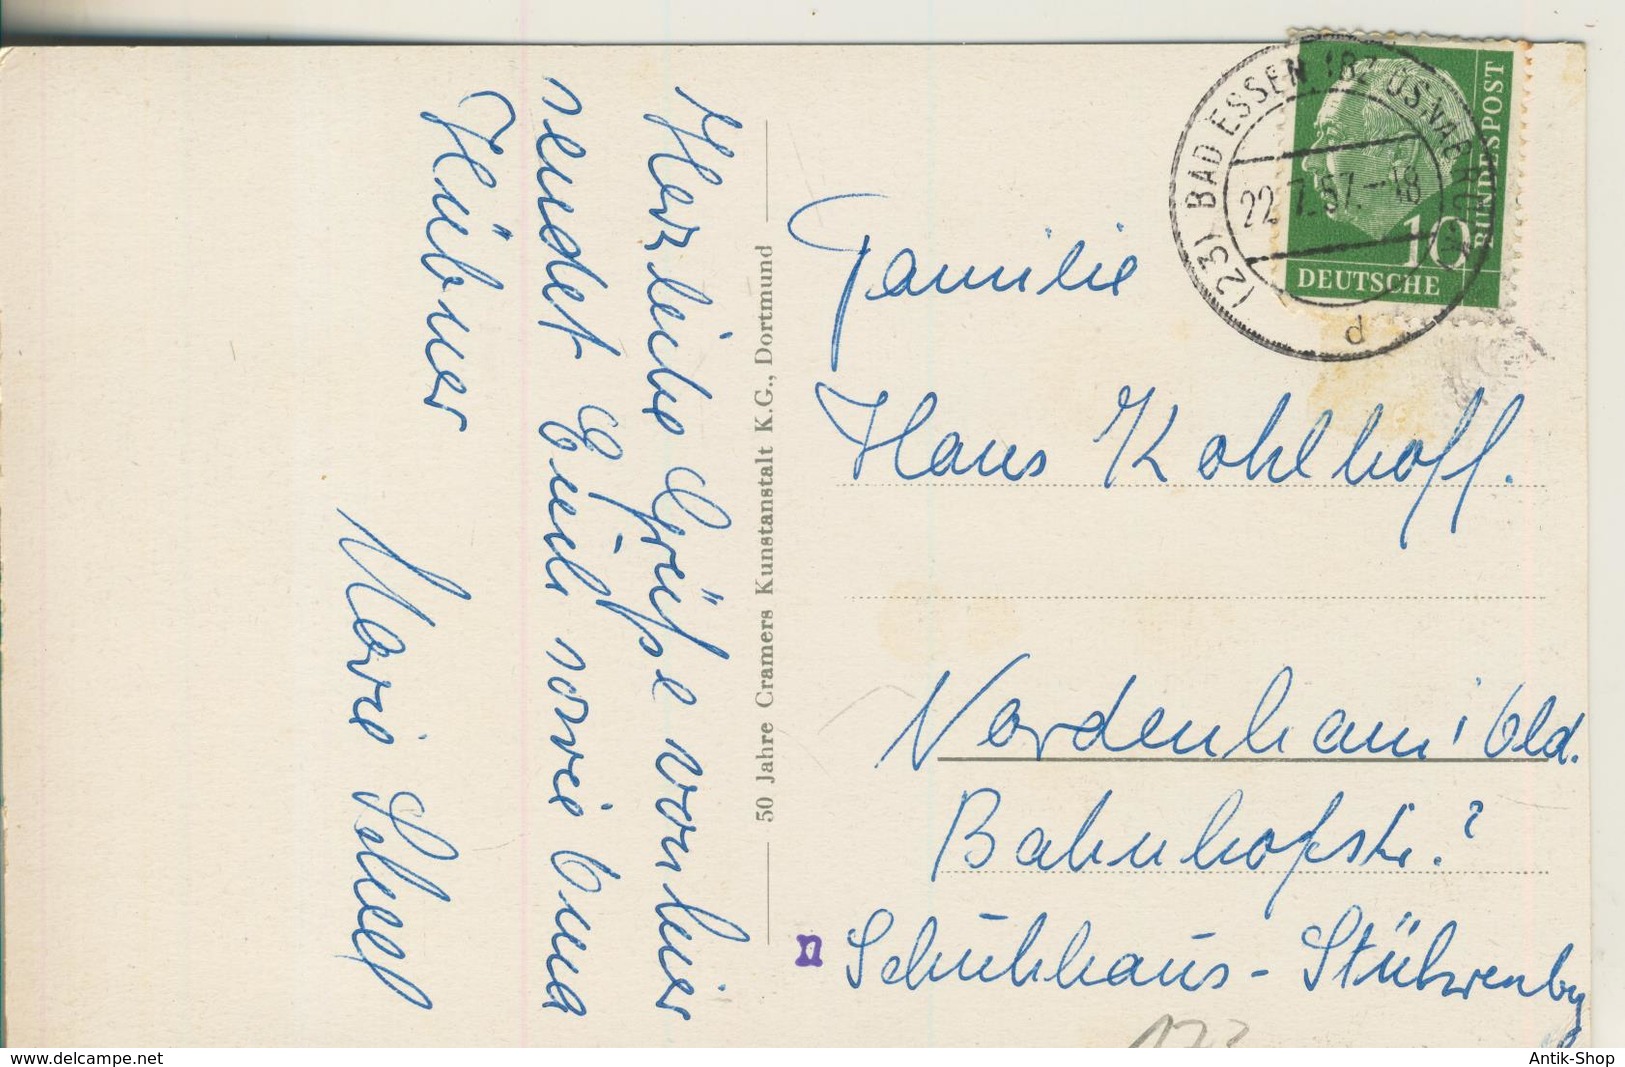 Herzliche Grüße von hier
sendet Euch sowie Oma
Hübner
Marie
50 Jahre Cramers Kunstanstalt K.G., Dortmund
(23) BAD ESSEN (BZ OSNABRÜCK)
22.7.57.-18
d
DEUTSCHE
BUNDESPOST
10
Familie
Hans Kohlhoff.
Nordenham i Old.
Bahnhofstr. ?
Schuhhaus -
delcampe.net
Antik-Shop